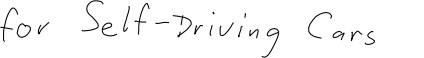 for Self-Driving Cars